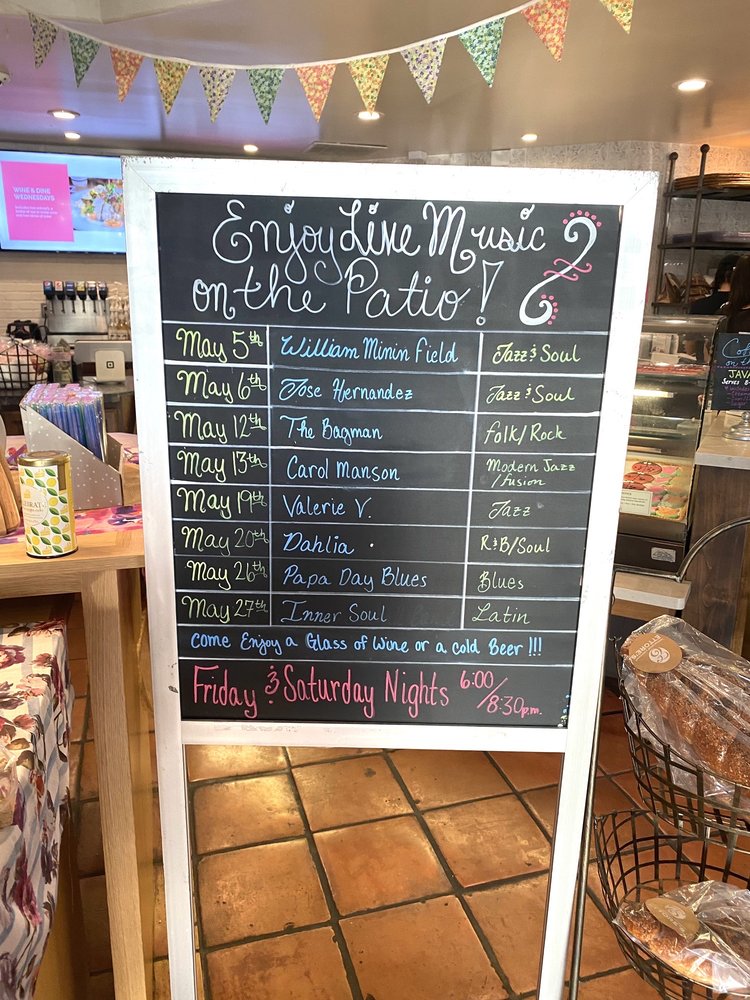 WINE & DINE
WEDNESDAYS
Enjoy Live Music
on the Patio!
May 5th William Minin Field Jazz & Soul
May 6th Jose Hernandez Jazz & Soul
May 12th The Bagman Folk/Rock
May 13th Carol Manson Modern Jazz
/fusion
May 19th Valerie V. Jazz
May 20th Dahlia. R&B/Soul
May 26th Papa Day Blues Blues
May 27th Inner Soul Latin
Come Enjoy a Glass of Wine or a cold Beer !!!
Friday & Saturday Nights 6:00
/8:30p.m.
on the
JAVA